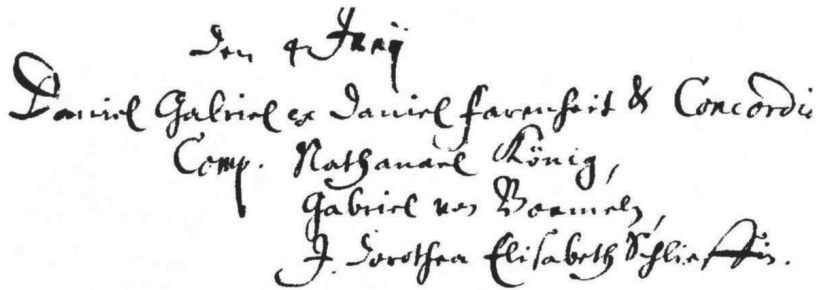 Den 4 Junij
Daniel Gabriel ex Daniel Farenheit & Concordia
Comp. Nathanael König,
Gabriel von Boemeln,
J. Dorothea Elisabeth Schlieffin.